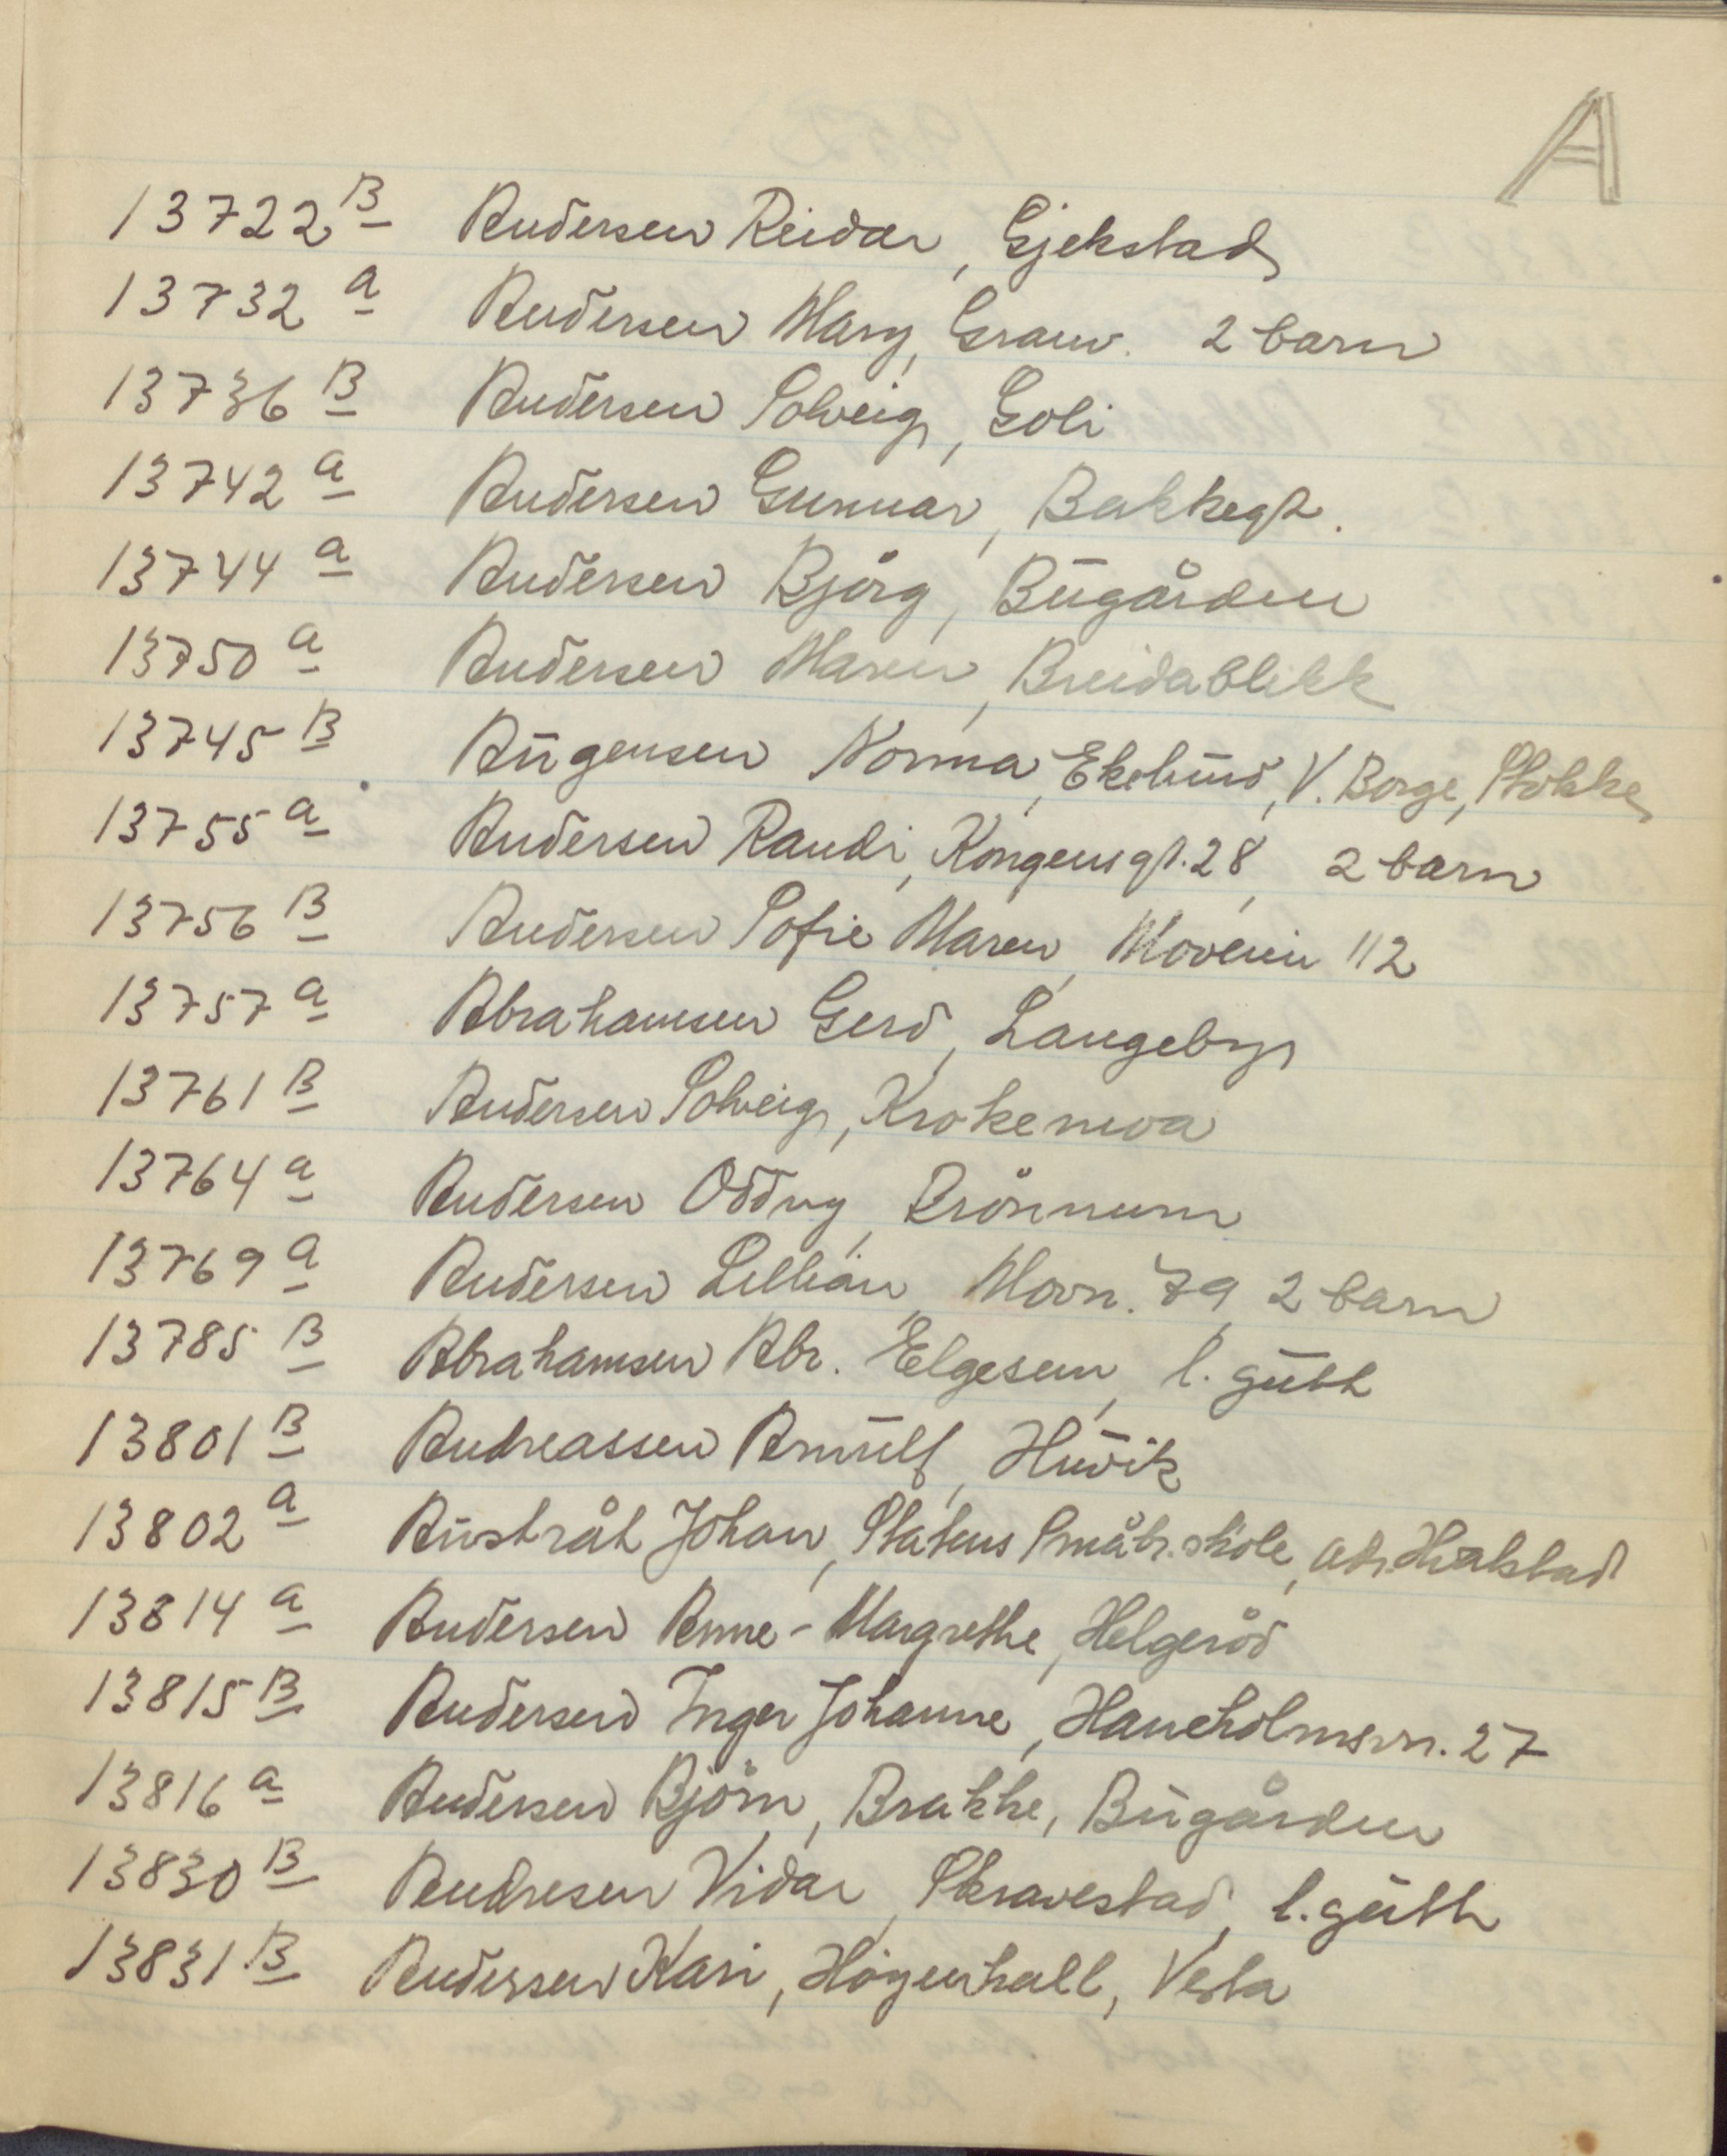 A
13722 B Andersen Reidar, Gjekstad
13732 a Andersen Mary, Granv. 2 barn
13736 B Andersen Solveig, Goli
13742 a Andersen Gunnar, Bakkegt.
13744 a Andersen Bjørg, Bugården
13750 a Andersen Maren, Breidablikk
13745 B Augensen Norma, Ekelund, V. Borge, Stokke
13755 a Andersen Randi, Kongensgt. 28, 2 barn
13756 B Andersen Sofie Maren, Moveien 112
13757 a Abrahamsen Gerd, Langeby
13761 B Andersen Solveig, Krokemoa
13764 a Andersen Oddny, Brönnum
13769 a Andersen Lillian, Movn. 79, 2 barn
13785 B Abrahamsen Abr. Elgesem, l. gutt
13801 B Andreassen Arnulf, Huvik
13802 a Austråt Johan, Statens Småbr.skole, adr. Hvalstad
13814 a Andersen Anne-Margrethe, Helgeröd
13815 B Andersen Inger Johanne, Haneholmsvn. 27
13816 a Andersen Björn, Brakke, Bugården
13830 B Andresen Vidar, Skravestad, l. gutt
13831 B Andersen Kari, Högenhall, Vesta